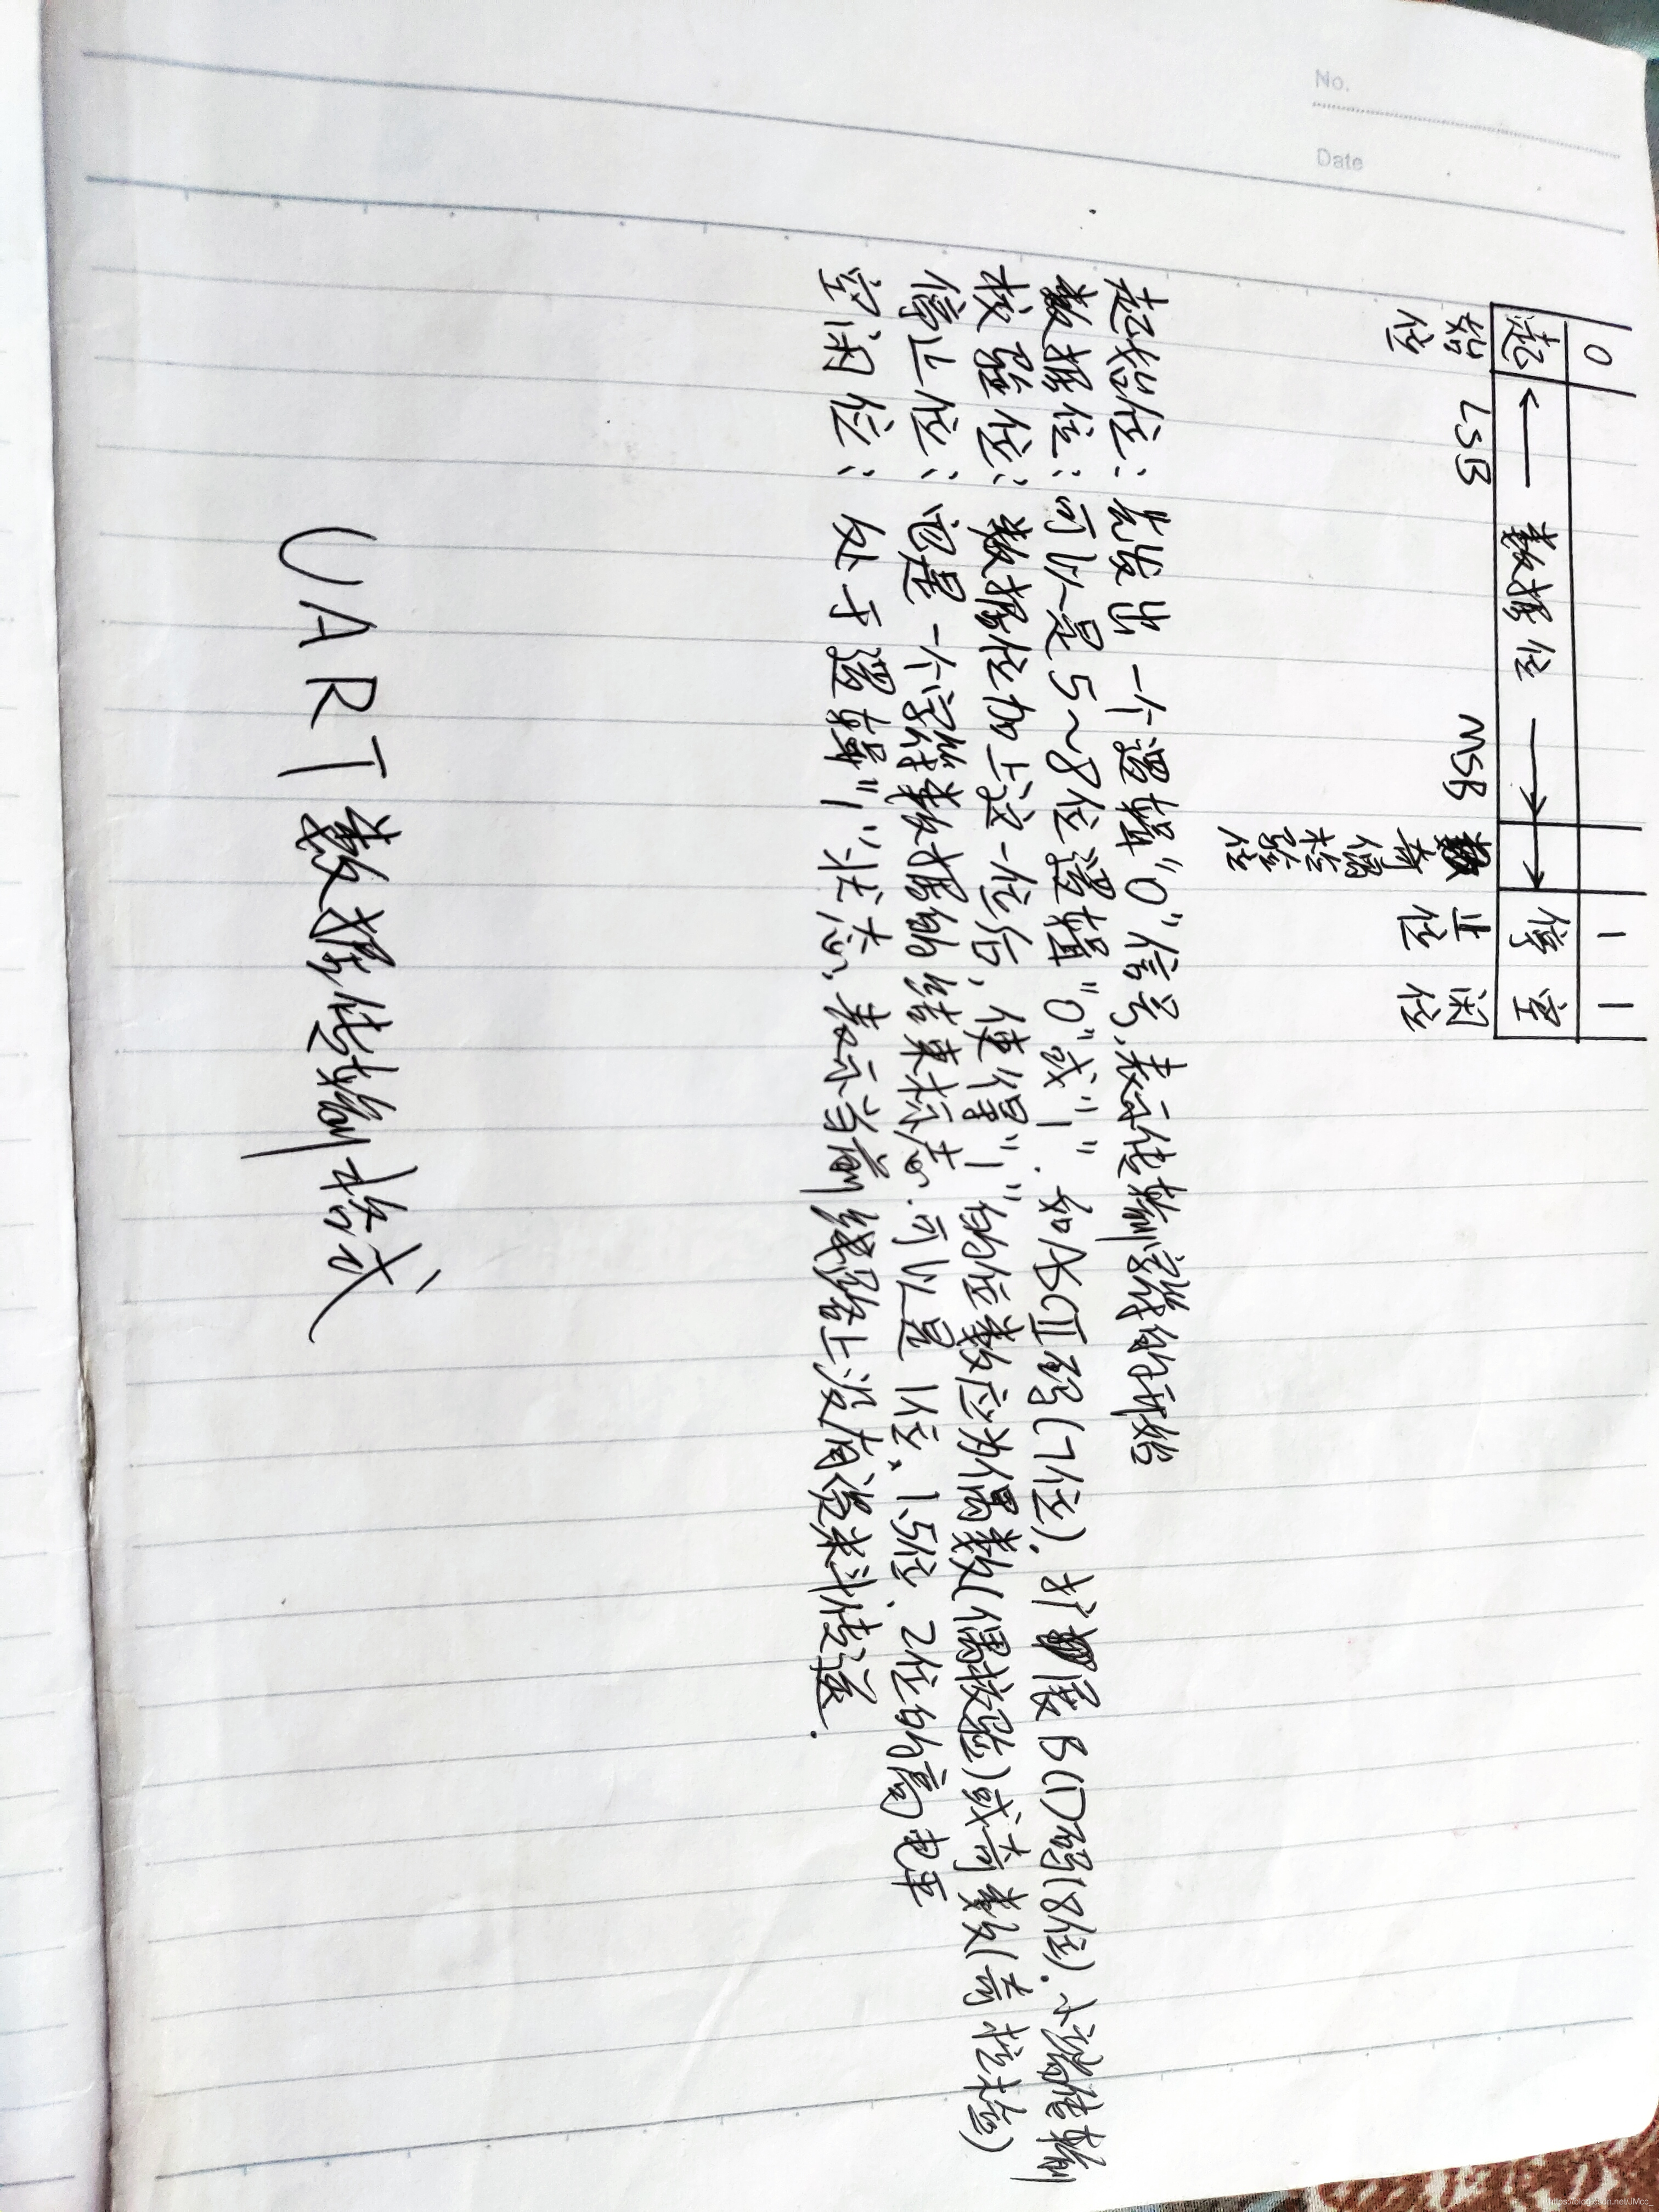 No.
Date
0 1 1
起 ← 数据位 → 停 空
始位 LSB MSB 奇偶检验位 止位 闲位
起始位：先发出一个逻辑"0"信号，表示传输字符的开始
数据位：可以是5~8位逻辑"0"或"1". 如ASCII码(7位). 扩展BCD码(8位). 小端传输
校验位：数据位加上这一位后，使得"1"的位数应为偶数(偶校验)或奇数(奇校验)
停止位：它是一个字符数据的结束标志.可以是1位、1.5位、2位的高电平
空闲位：处于逻辑"1"状态，表示当前线路上没有资料传送.
UART数据传输格式
https://blog.csdn.net/JMcc_